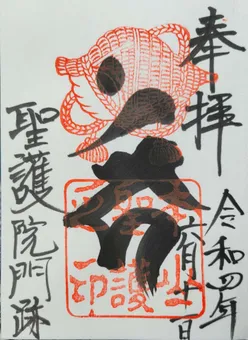 奉拝
令和四年
六月十一日
聖護院門跡